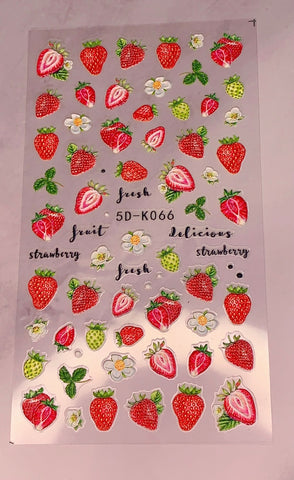 fresh
5D-K066
fruit delicious
strawberry strawberry
fresh